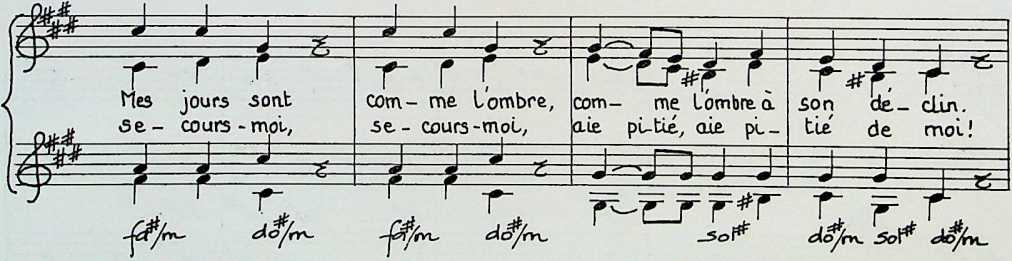 Mes jours sont com-me l'ombre, com-me l'ombre à son dé-clin.
se-cours-moi, se-cours-moi, aie pi-tié, aie pi-tié de moi!
fa#/m do#/m fa#/m do#/m sol# do#/m sol# do#/m